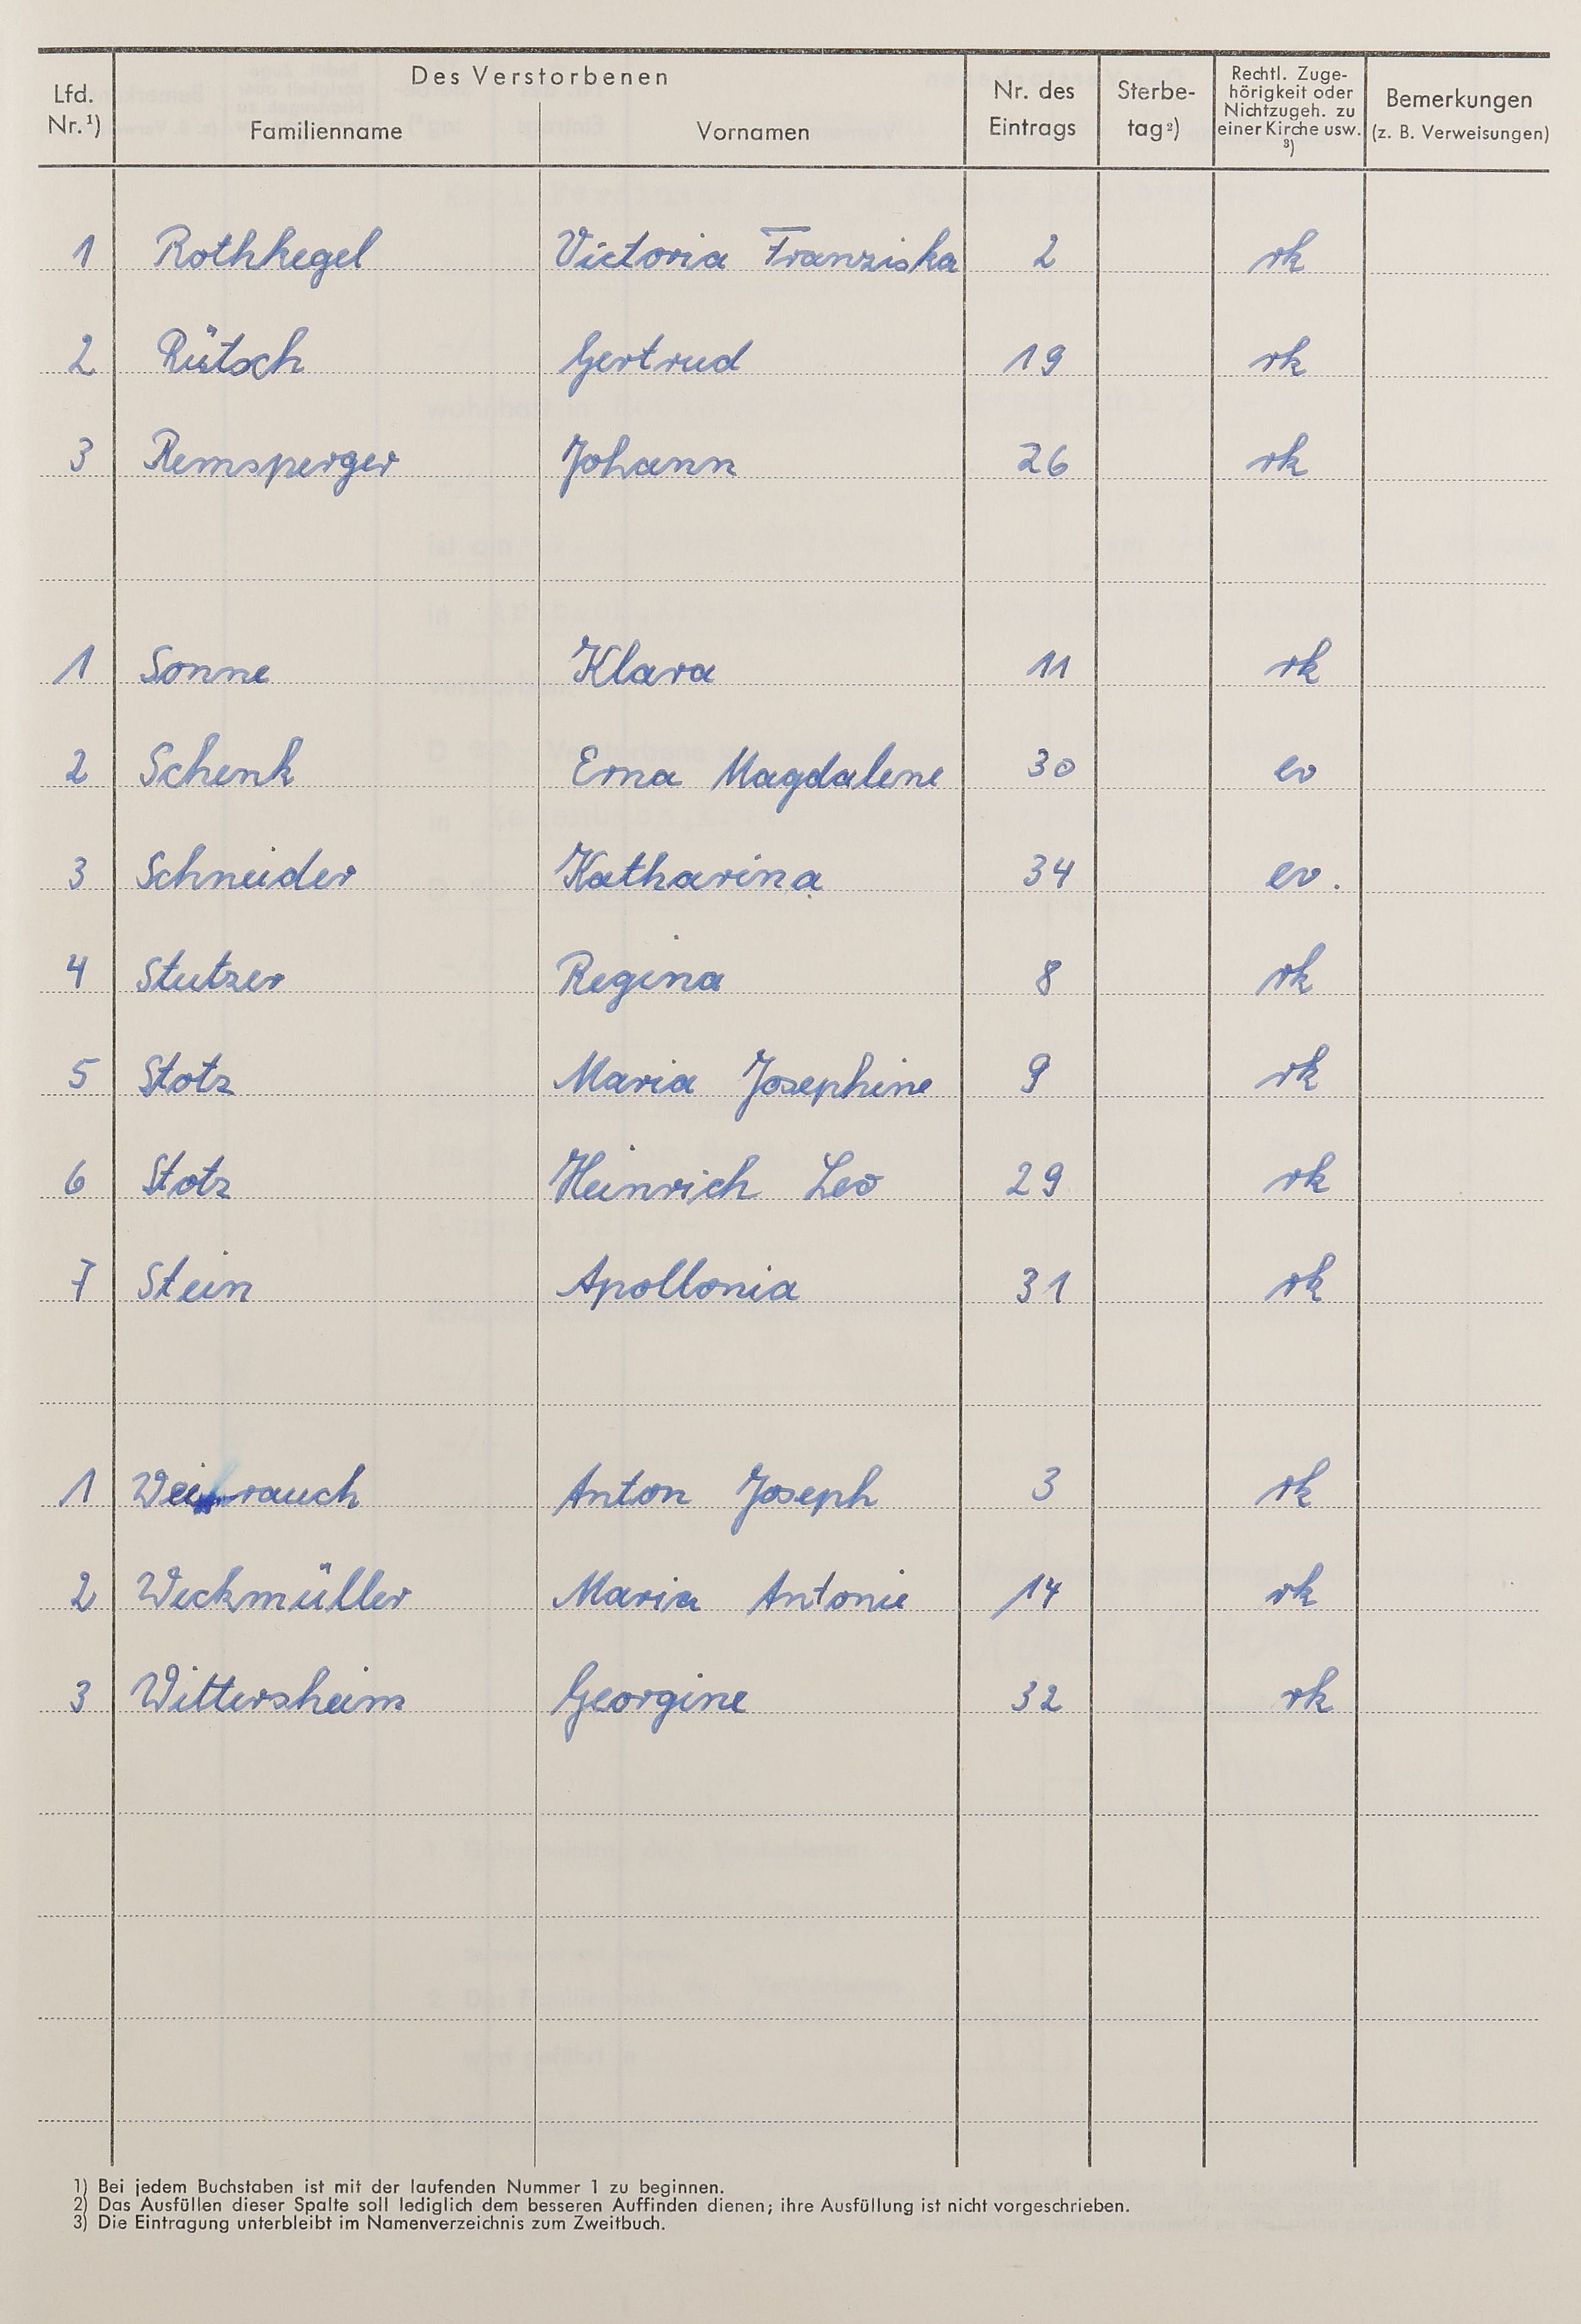 Des Verstorbenen
Lfd. Nr. ¹) Familienname Vornamen Nr. des Eintrags Sterbe-tag ²) Rechtl. Zuge-hörigkeit oder Nichtzugeh. zu einer Kirche usw. ³) Bemerkungen (z. B. Verweisungen)
1 Rothkegel Victoria Franziska 2 rk
2 Rütsch Gertrud 19 rk
3 Remsperger Johann 26 rk
1 Sonne Klara 11 rk
2 Schenk Erna Magdalene 30 ev
3 Schneider Katharina 34 ev.
4 Stutzer Regina 8 rk
5 Stotz Maria Josephine 9 rk
6 Stotz Heinrich Leo 29 rk
7 Stein Apollonia 31 rk
1 Anton Joseph 3 rk
2 Weckmüller Maria Antonie 14 rk
3 Wittersheim Georgine 32 rk
1) Bei jedem Buchstaben ist mit der laufenden Nummer 1 zu beginnen.
2) Das Ausfüllen dieser Spalte soll lediglich dem besseren Auffinden dienen; ihre Ausfüllung ist nicht vorgeschrieben.
3) Die Eintragung unterbleibt im Namenverzeichnis zum Zweitbuch.